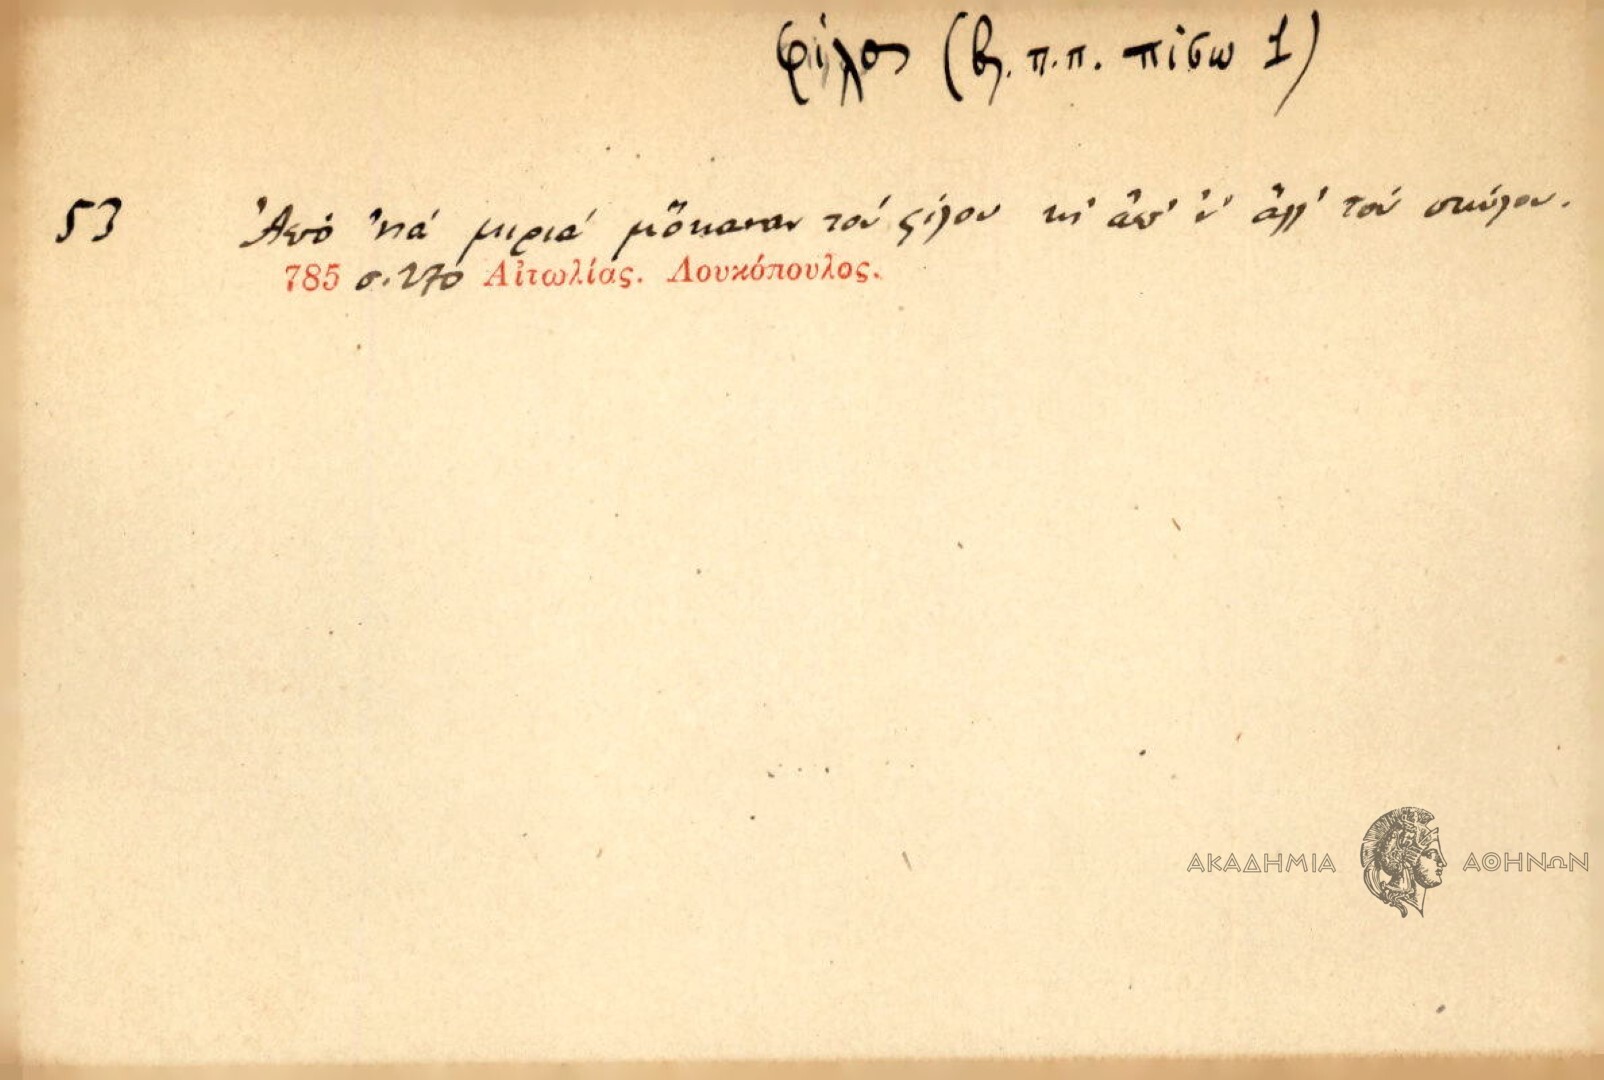 φίλος (βλ. π.π. πίσω 1)
53 Ἀπὸ 'νιὰ μιριὰ μὄκαναν τοὺ φίλου κι' ἀπ' ν' ἄλλ' τοὺ σκύλου.
785 σ. 270 Αἰτωλίας. Λουκόπουλος.
ΑΚΑΔΗΜΙΑ ΑΘΗΝΩΝ